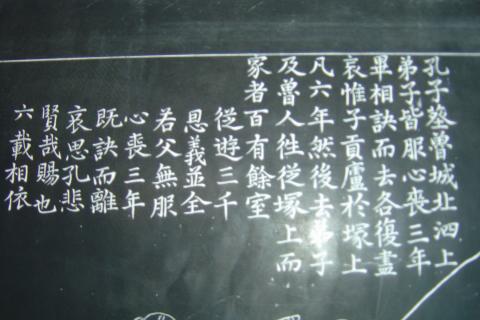 孔子葬魯城北泗上
弟子皆服心喪三年
畢相訣而去各復盡
哀惟子貢廬於塚上
凡六年然後去弟子
及魯人徃從塚上而
家者百有餘室
從遊三千
恩義並全
若父無服
心喪三年
既訣而離
哀思孔悲
賢哉賜也
六載相依